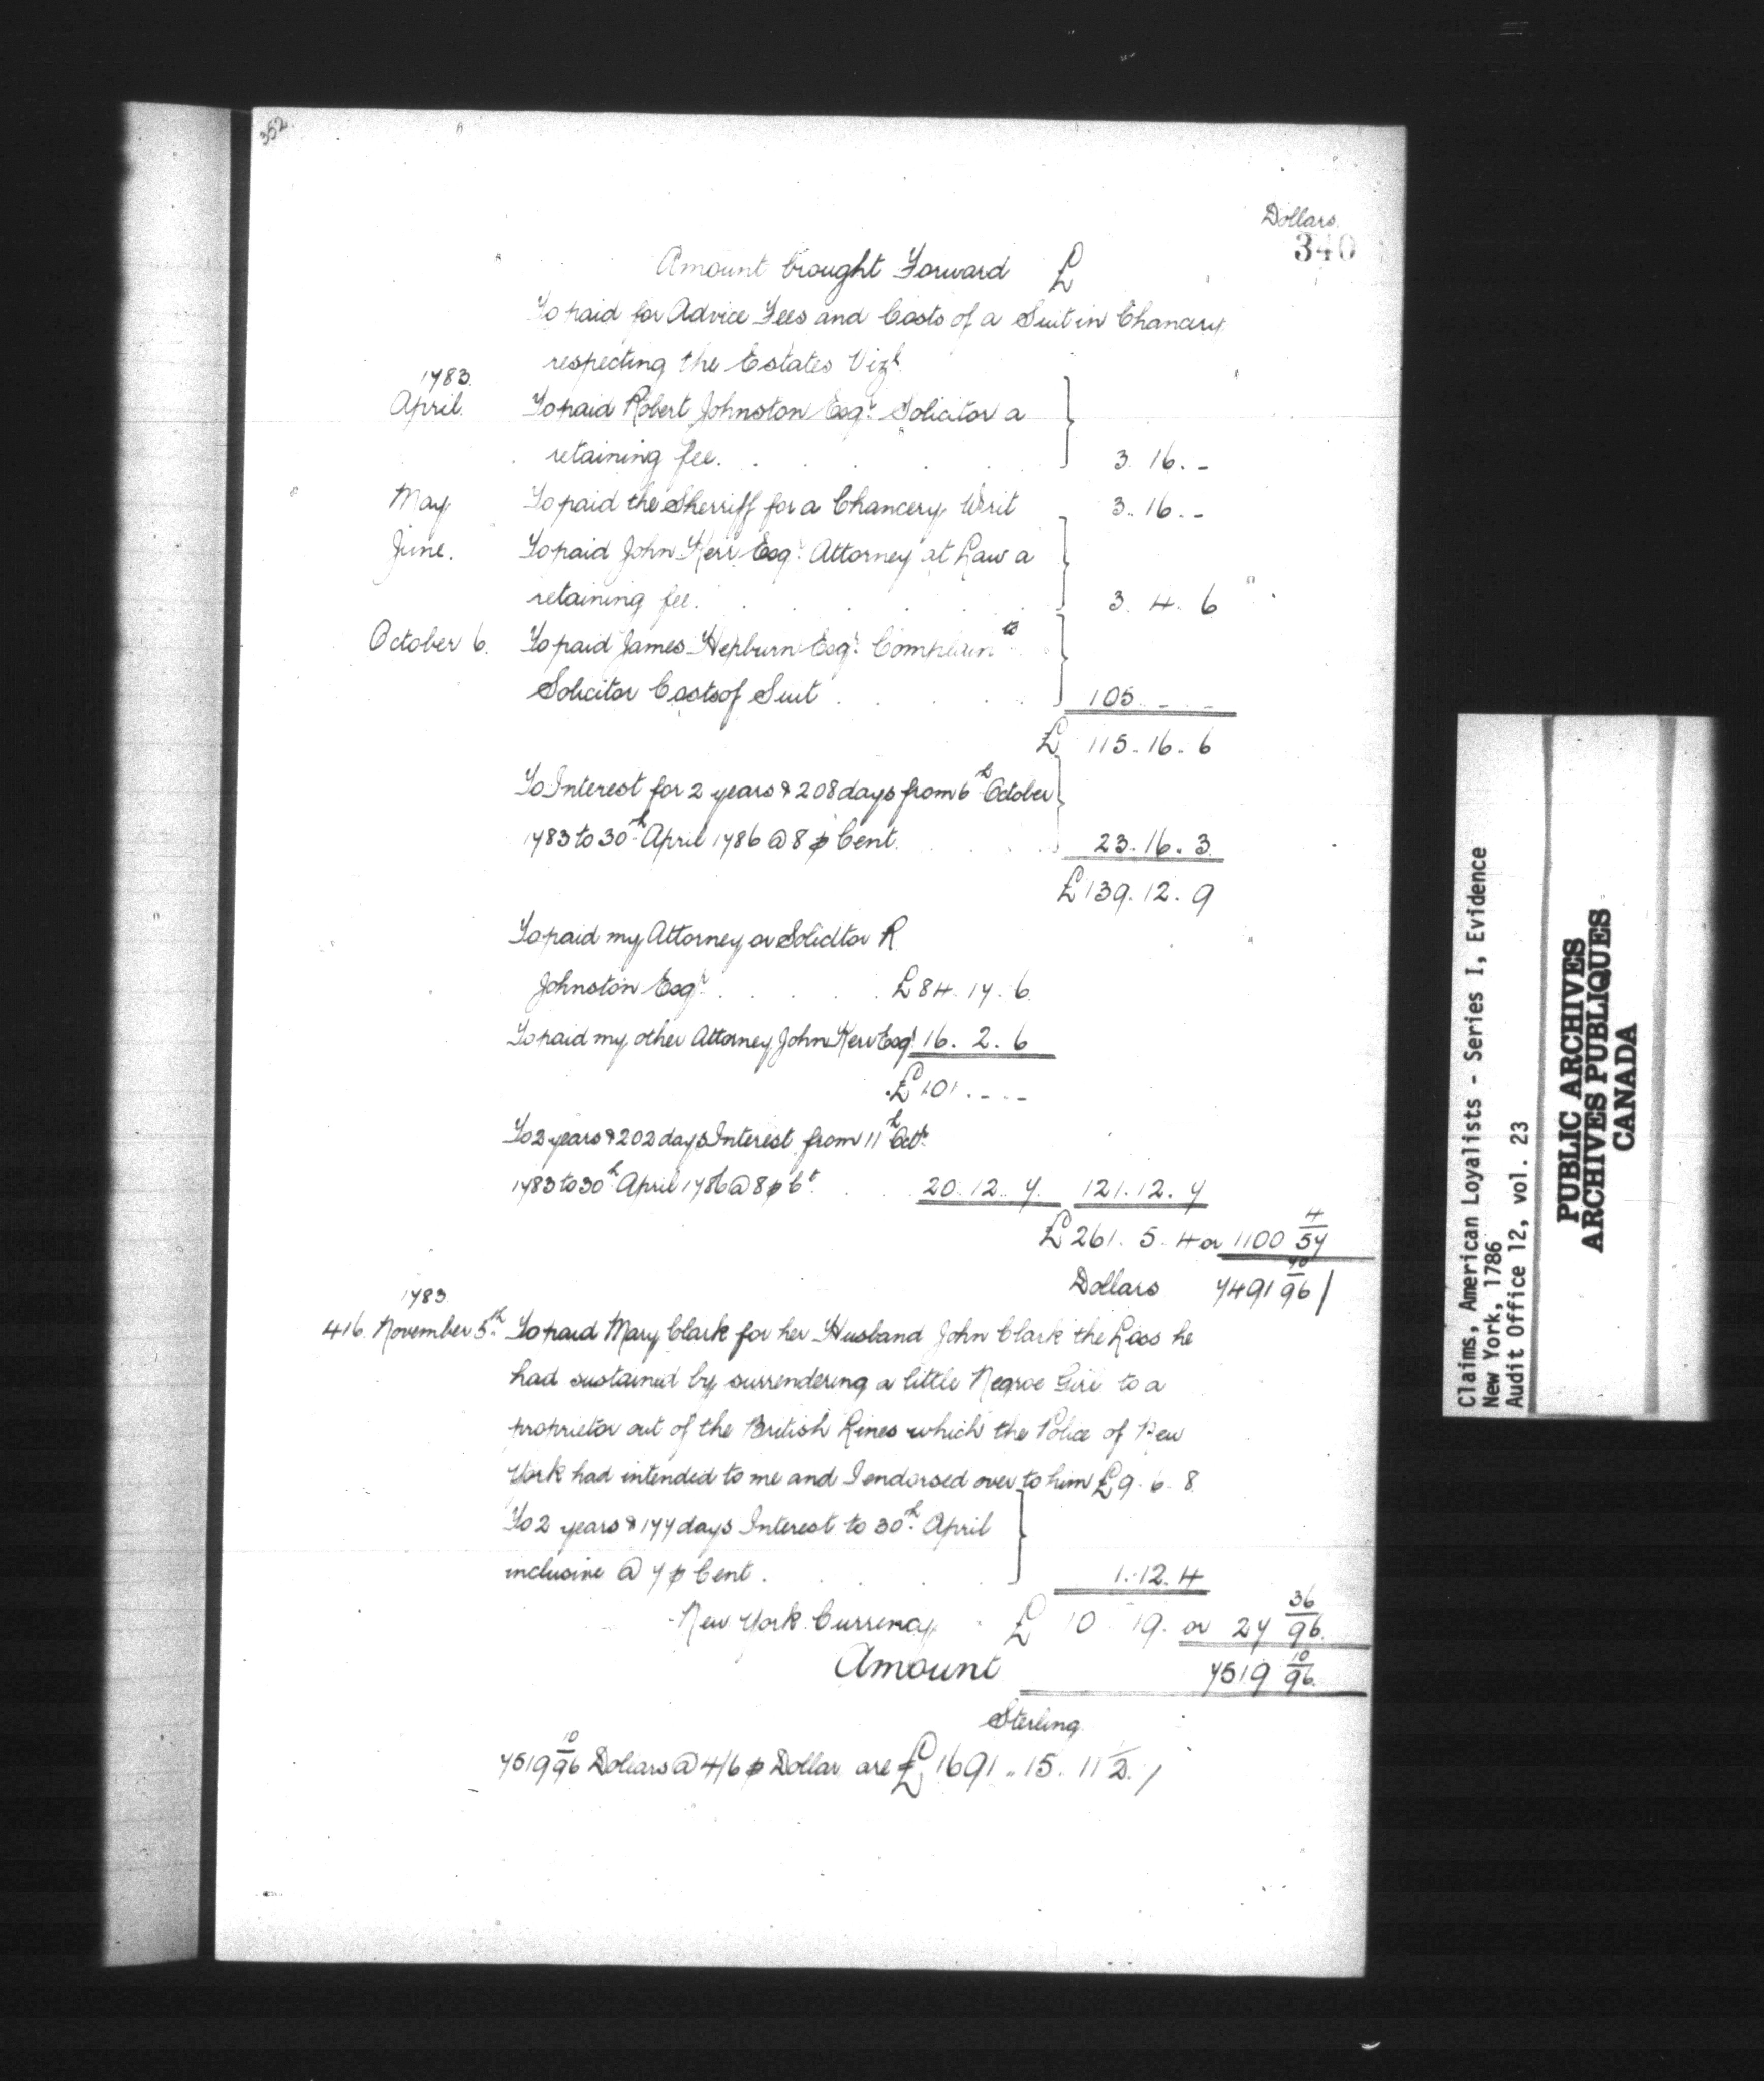 352
Dollars.
340
Amount brought Forward £
To paid for Advice Fees and Costs of a Suit in Chancery
respecting the Estates Vizt.
1783.
April. To paid Robert Johnston Esqr. Solicitor a
retaining fee. 3. 16. -
May To paid the Sherriff for a Chancery Writ 3. 16. -
June. To paid John Kerr Esqr. Attorney at Law a
retaining fee. 3. 4. 6
October 6. To paid James Hepburn Esqr. Complain ts
Solicitor Costs of Suit 105. - -
£ 115. 16. 6
To Interest for 2 years & 208 days from 6th October
1783 to 30th April 1786 @ 8 p Cent. 23. 16. 3.
£ 139. 12. 9
To paid my Attorney or Solicitor R
Johnston Esqr. £ 84. 17. 6.
To paid my other Attorney John Kerr Esqr 16. 2. 6
£ 101. - -
To 2 years & 202 days Interest from 11th Octr.
1783 to 30th April 1786 @ 8 p Ct. 20. 12. 7. 121. 12. 7
£ 261. 5. 4 or 1100 4/57
Dollars 7491 70/96 /
1783
416. November 5th. To paid Mary Clark for her Husband John Clark the Loss he
had sustained by surrendering a little Negroe Girl to a
proprietor out of the British Lines which the Police of New
York had intended to me and I endorsed over to him £ 9. 6. 8.
To 2 years & 177 days Interest to 30th. April
inclusive @ 7 p Cent. 1. 12. 4
New York Currency £ 10 19. or 27 36/96.
Amount 7519 10/96.
Sterling.
7519 10/96 Dollars @ 4/6 p Dollar are £ 1691.. 15. 11 1/2. /
Claims, American Loyalists - Series I, Evidence
New York, 1786
Audit Office 12, vol. 23
PUBLIC ARCHIVES
ARCHIVES PUBLIQUES
CANADA